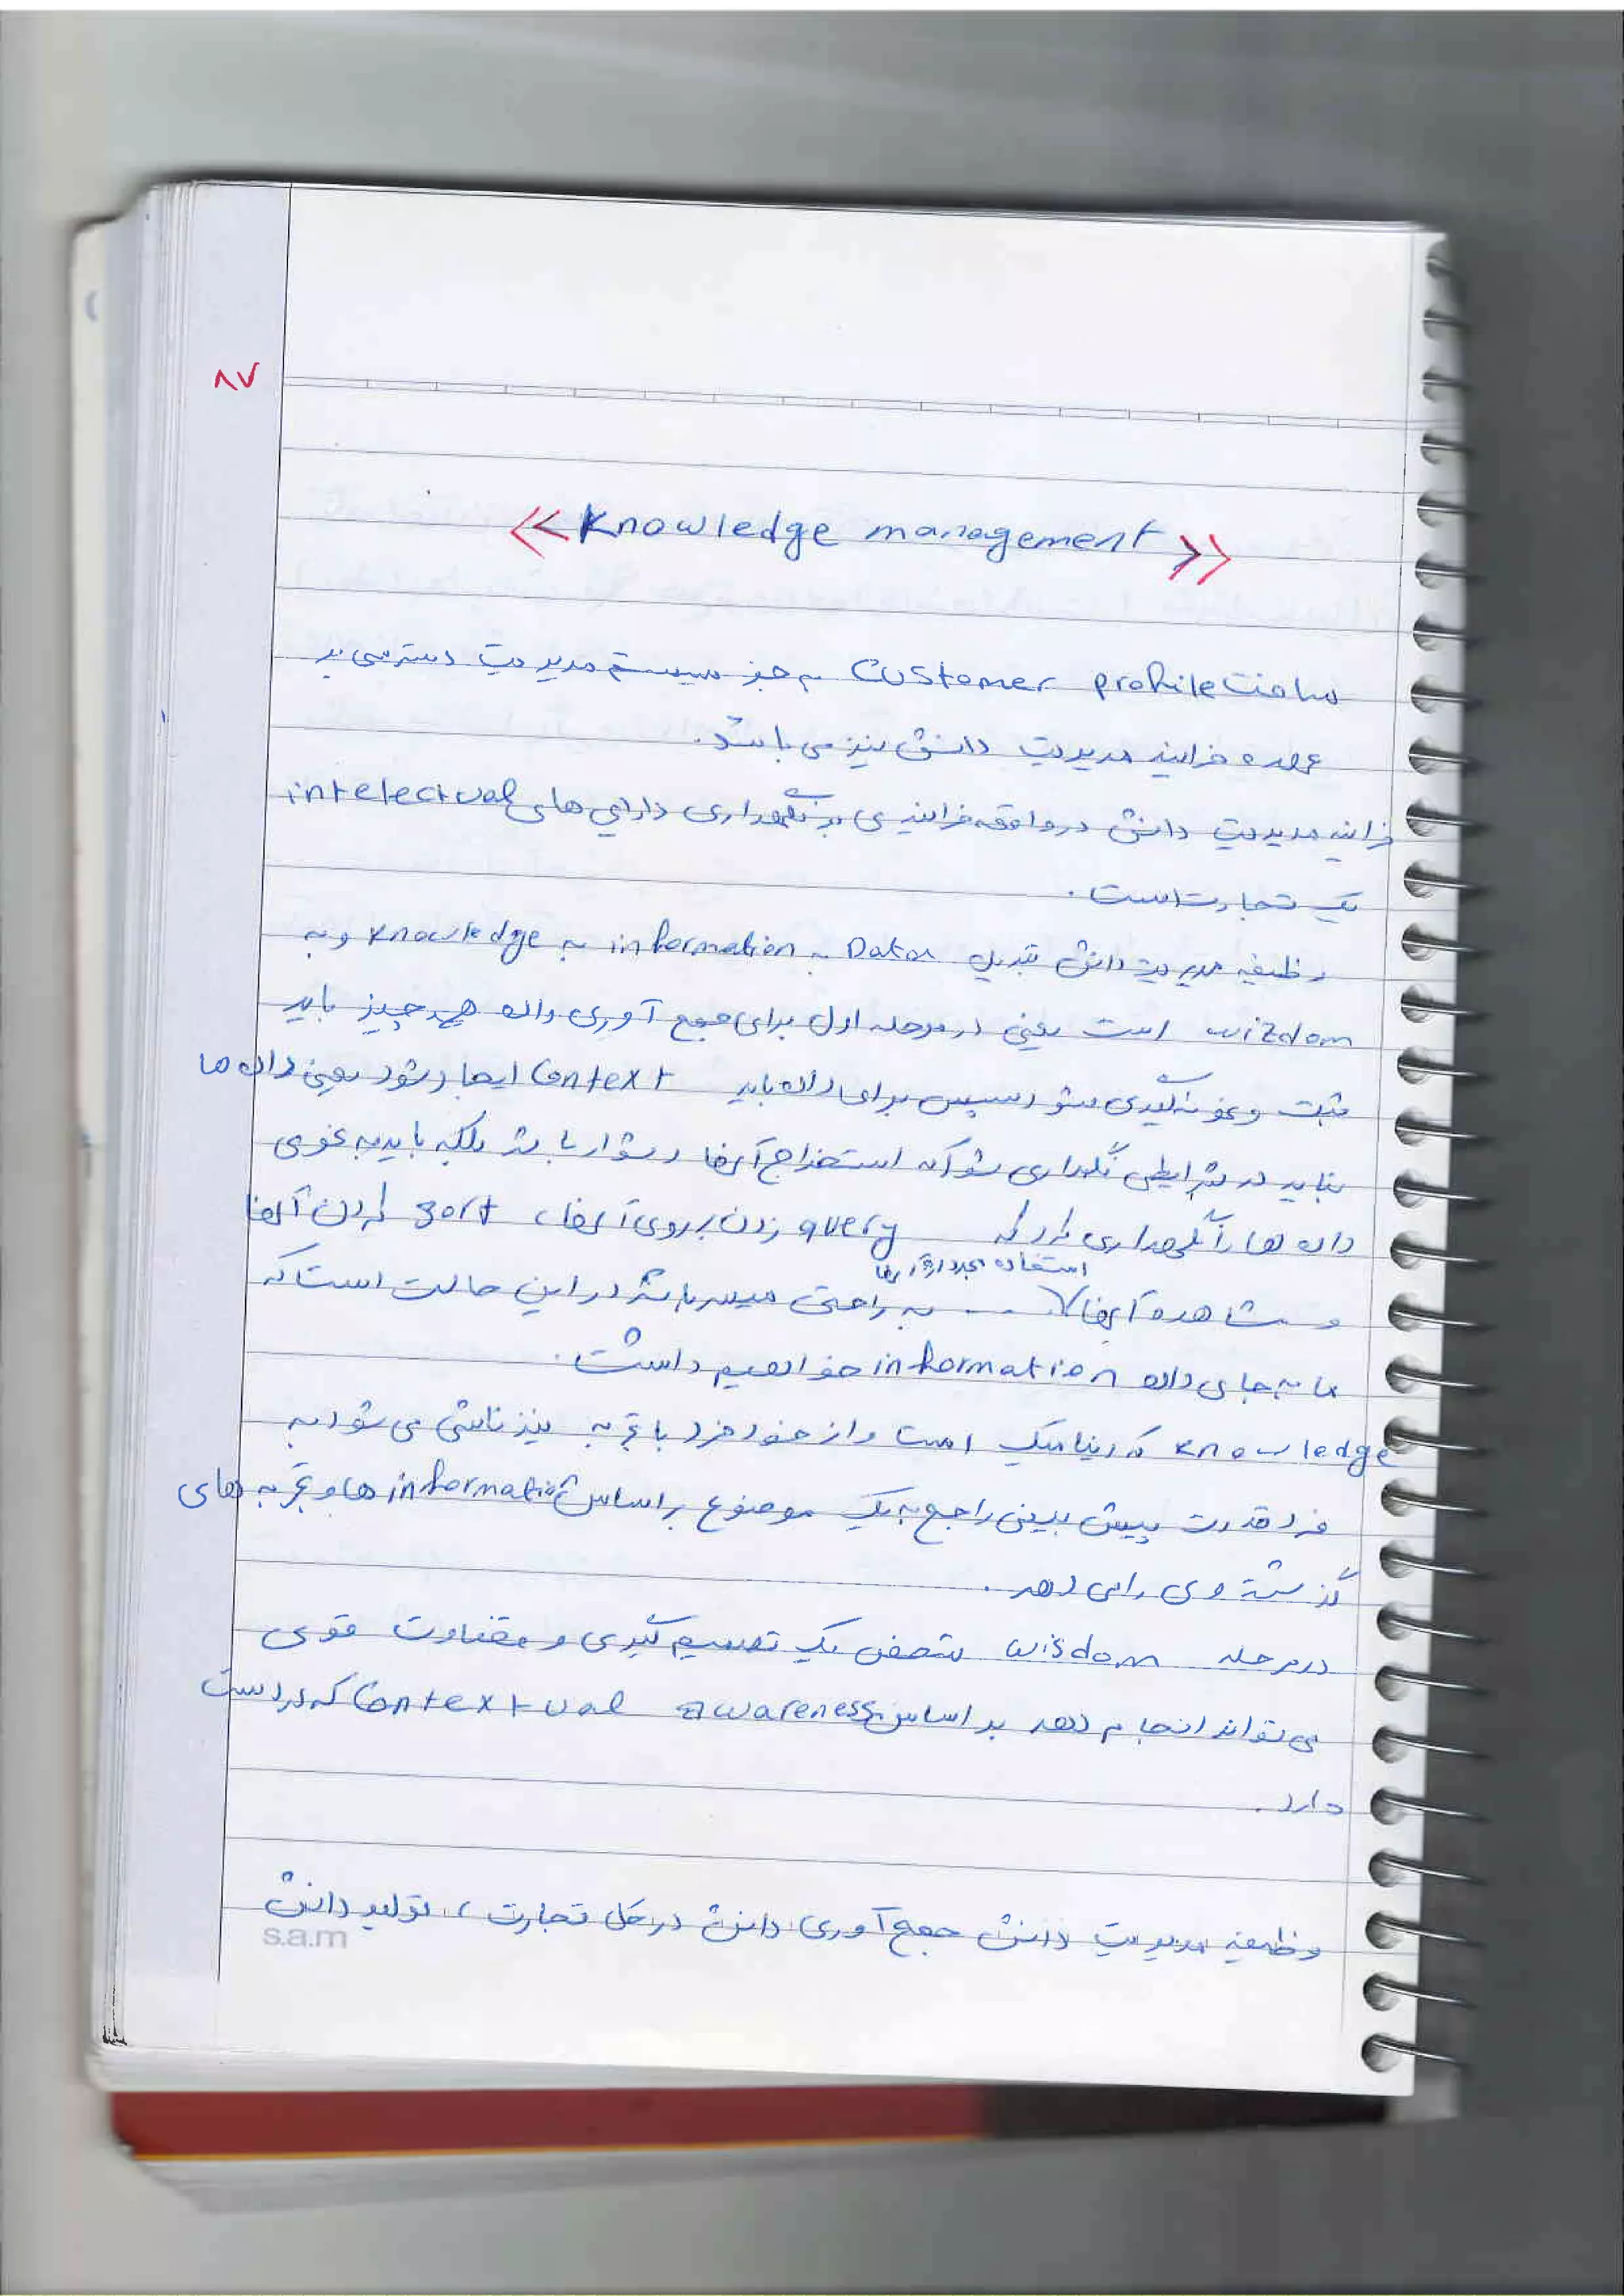 ۸۷
«Knowledge management»
ساخت Customer profile به جز سیستم مدیریت دسترسی بر
عهده فرایند مدیریت دانش نیز می باشد.
فرایند مدیریت دانش در واقعه فرایندی بر نگهداری دارایی های intelectual
یک تجارت است.
وظیفه مدیریت دانش تبدیل Data به information به knowledge و به
wizdom است یعنی در مرحله اول برای جمع آوری داده همه چیز باید
ثبت و نمونه گیری شود سپس برای داده باید Context ایجاد شود یعنی داده ها
نباید در شرایطی نگهداری شود که استخراج آنها دشوار باشد بلکه باید به نحوی
داده ها را نگهداری کرد که query زدن بر روی آنها، sort کردن آنها
استفاده مجدد از آنها
و مشاهده آنها ... به راحتی میسر باشد در این حالت است که
ما به جای داده information خواهیم داشت.
knowledge که دینامیک است و از خود فرد با تجربه نیز ناشی می شود به
فرد قدرت پیش بینی راجع به یک موضوع بر اساس information ها و تجربه های
گذشته وی را می دهد.
در مرحله wisdom شخص یک تصمیم گیری و قضاوت قوی
می تواند انجام دهد بر اساس Contextual awareness که در دست
دارد.
وظیفه مدیریت دانش جمع آوری دانش در کل تجارت، تولید دانش
s.a.m